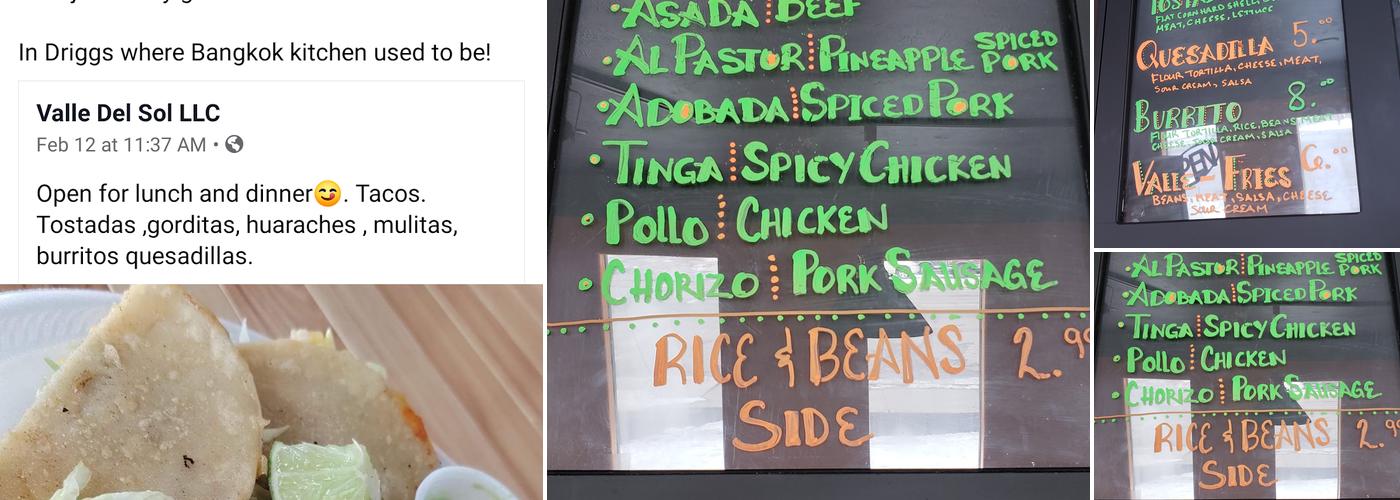 In Driggs where Bangkok kitchen used to be!
Valle Del Sol LLC
Feb 12 at 11:37 AM •
Open for lunch and dinner😋. Tacos.
Tostadas ,gorditas, huaraches , mulitas,
burritos quesadillas.
• ASADA BEEF
• AL PASTOR PINEAPPLE SPICED PORK
• ADOBADA SPICED PORK
• TINGA SPICY CHICKEN
• POLLO CHICKEN
• CHORIZO PORK SAUSAGE
RICE & BEANS 2.99
SIDE
FLAT CORN HARD SHELL
MEAT, CHEESE, LETTUCE
QUESADILLA 5.00
FLOUR TORTILLA, CHEESE, MEAT,
SOUR CREAM, SALSA
BURRITO 8.00
FLOUR TORTILLA, RICE, BEANS, MEAT
CHEESE, SOUR CREAM, SALSA
OPEN
VALLE-FRIES 6.00
BEANS, MEAT, SALSA, CHEESE
SOUR CREAM
• AL PASTOR PINEAPPLE SPICED PORK
• ADOBADA SPICED PORK
• TINGA SPICY CHICKEN
• POLLO CHICKEN
• CHORIZO PORK SAUSAGE
RICE & BEANS 2.99
SIDE